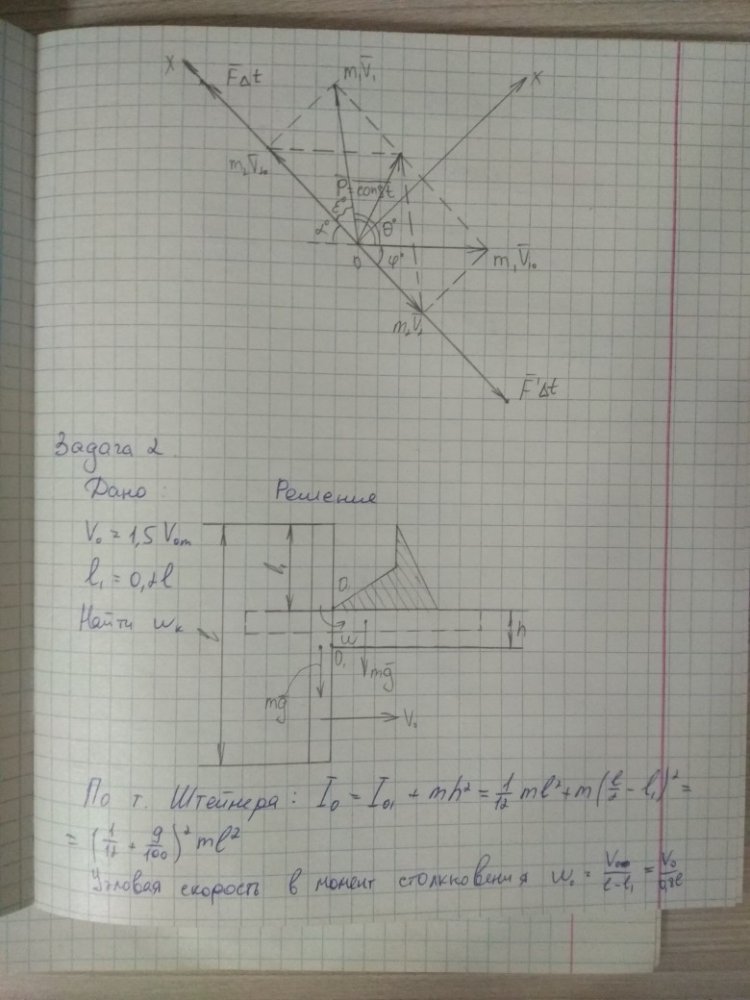 X
F̄Δt
m₁V̄₁
X
m₂V̄₂₀
P̄=const
ε°
α°
θ°
φ°
0
m₁V̄₁₀
m₂V̄₂
F̄'Δt
Задача 2.
Дано:
Решение
V₀ = 1,5 V₀m
l₁ = 0,2l
Найти ωк
l₁
O₁
h
ω
O₁
mḡ
mḡ
V₀
По т. Штейнера: I₀ = I₀₁ + mh² = 1/12 ml² + m(l/2 - l₁)² =
= (1/12 + 9/100)² ml²
Угловая скорость в момент столкновения ω₀ = /l-l₁ = V₀/0,8l